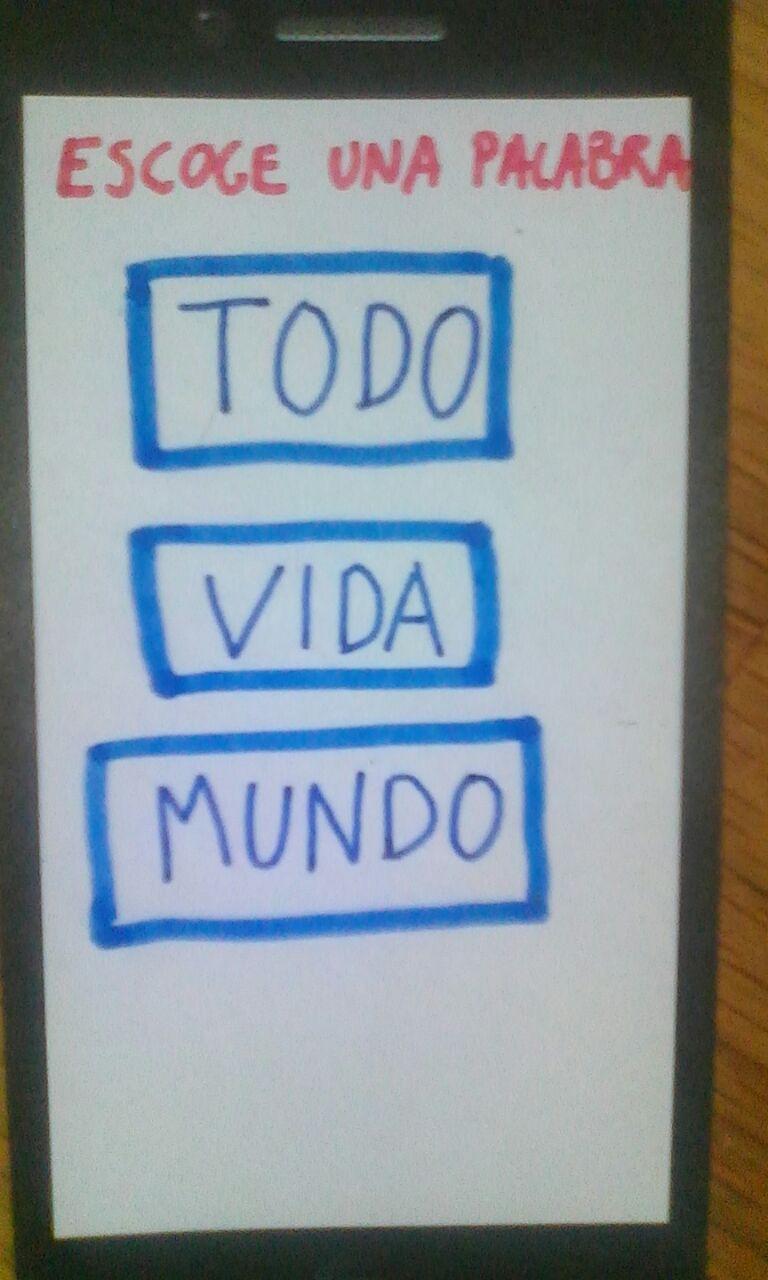 ESCOGE UNA PALABRA
TODO
VIDA
MUNDO